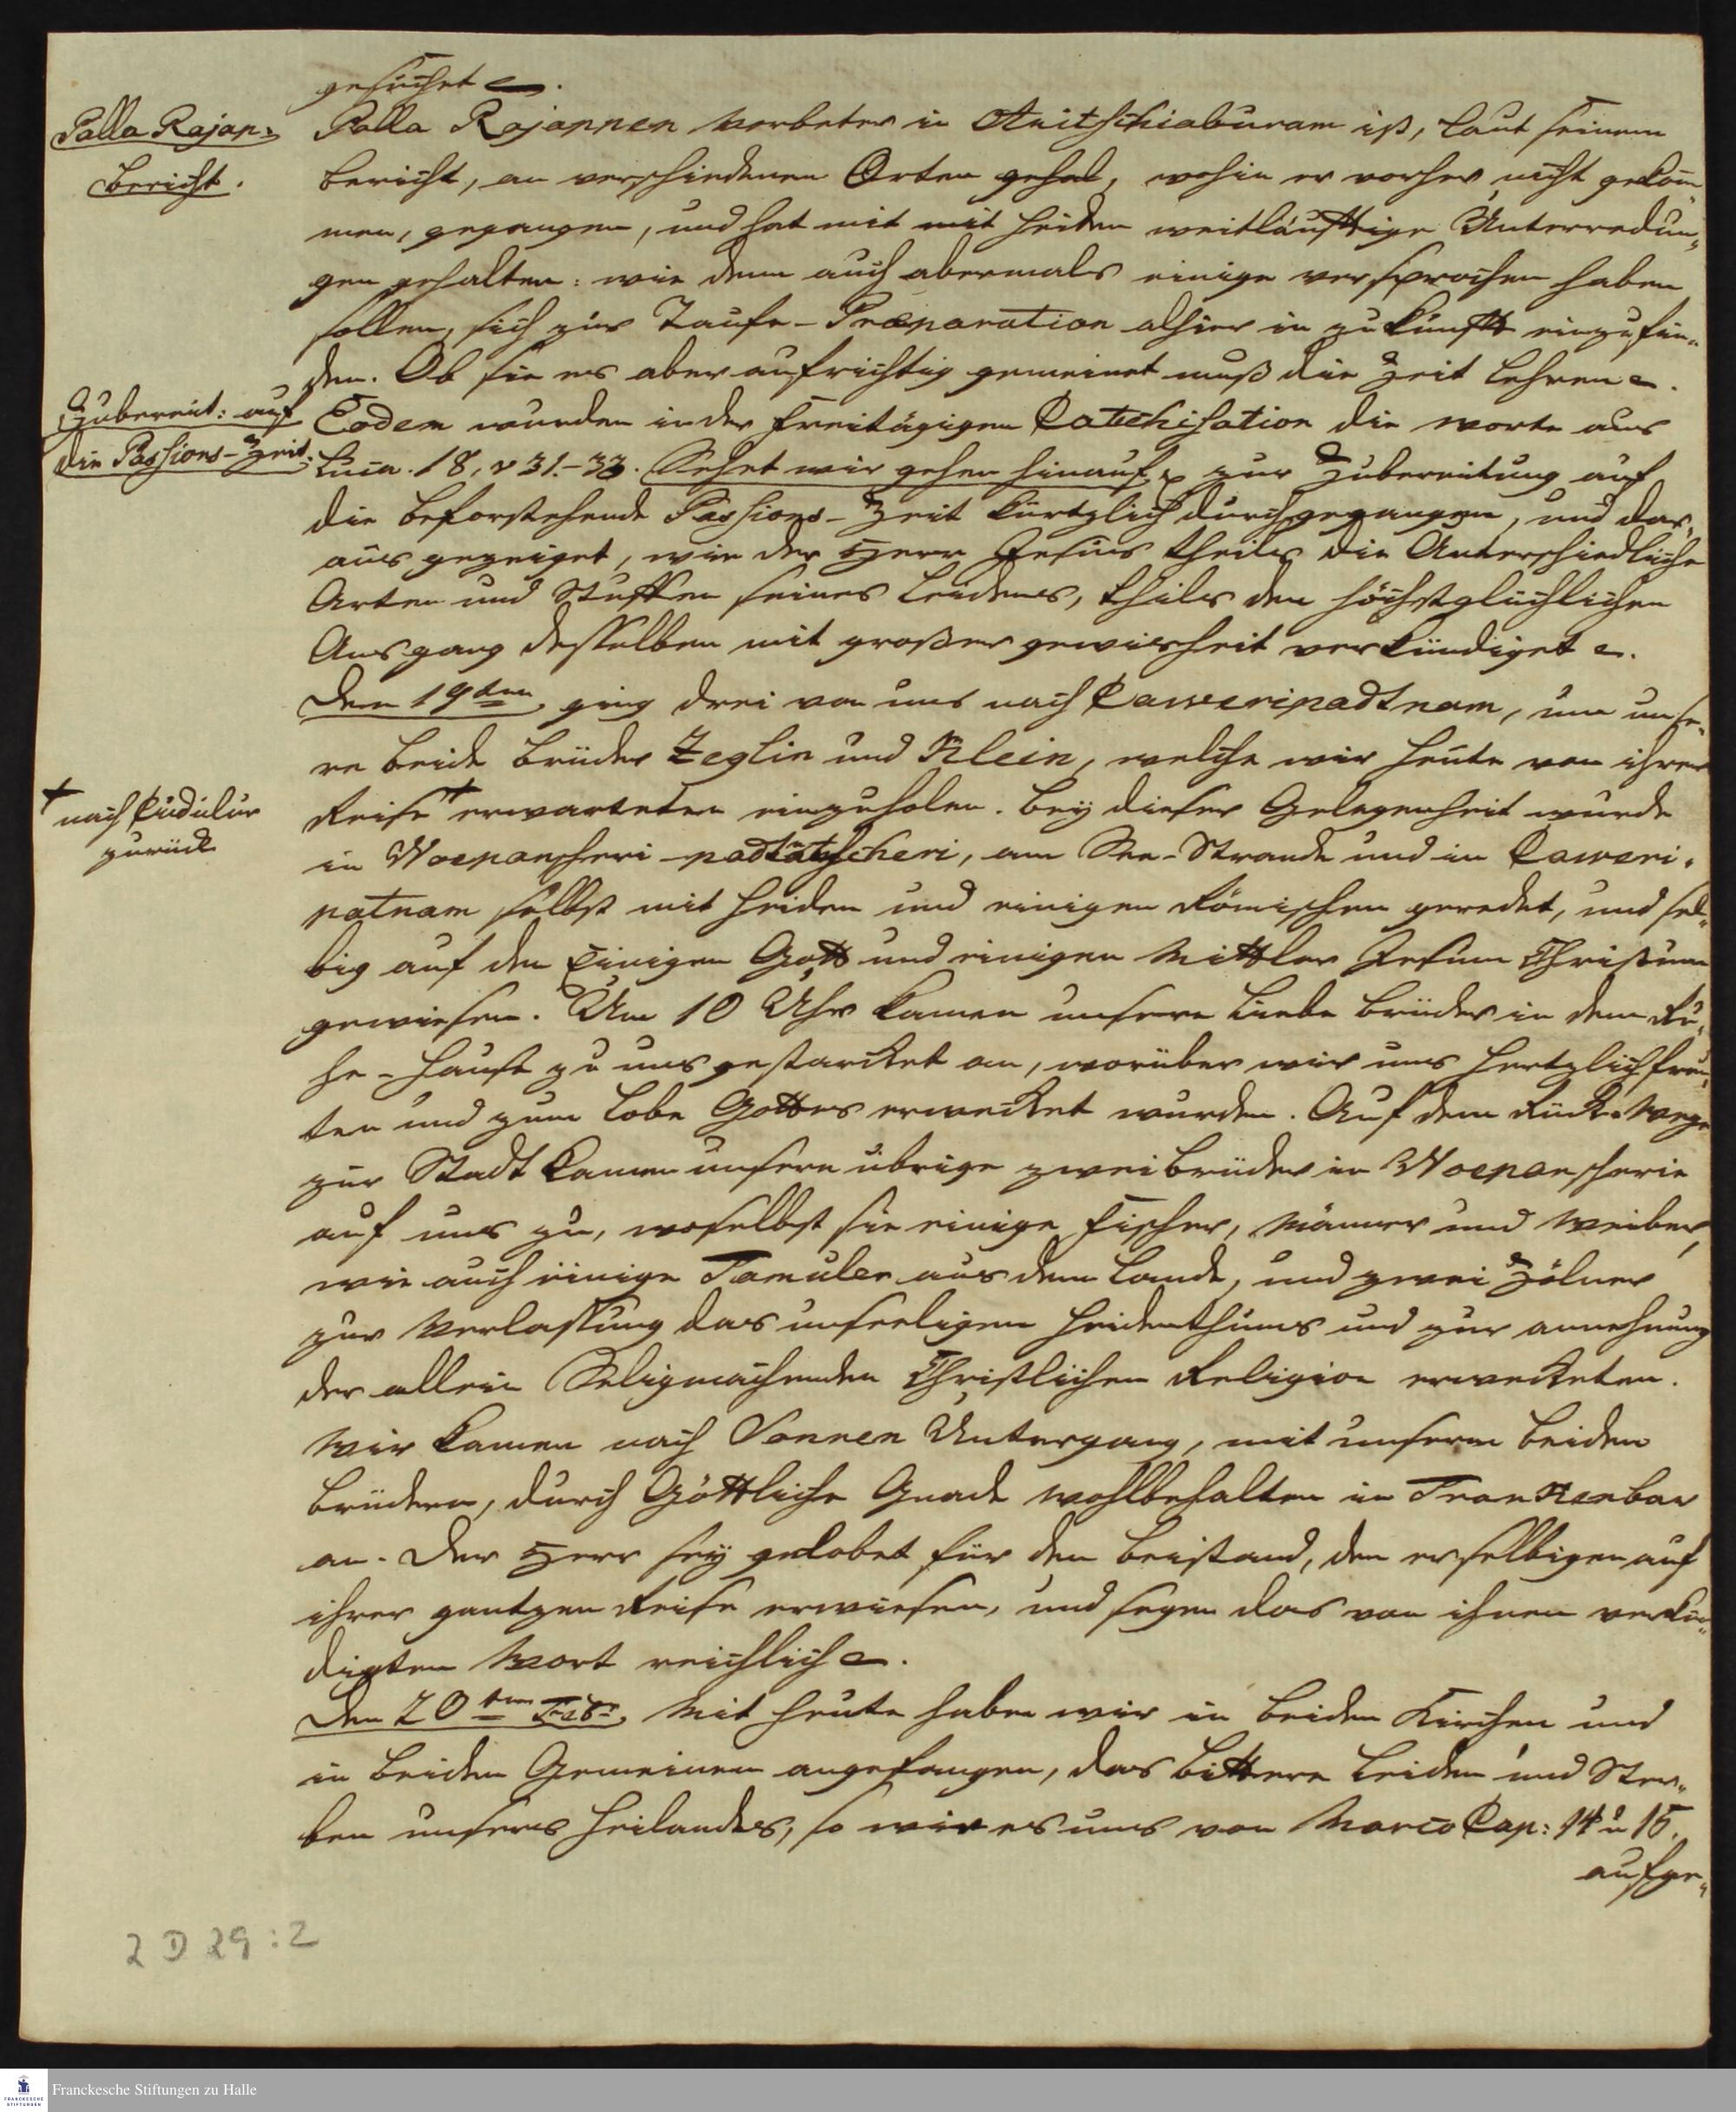 gesuchet ⁓.
Palla Rajan-
bericht.
Palla Rajannen Vorbeter in Anitschiaburam ist, laut seinem
bericht, an verschiedenen Orten gehal, wohin er vorher nicht gekom̄
men, gegangen, und hat mit mit Heiden weitläufftige Unterredun-
gen gehalten: wie denn auch abermals einige versprochen haben
sollen, sich zur Taufe-Præparation alhier in zukunfft einzufin-
den. Ob sie es aber aufrichtig gemeinet muß die Zeit lehren ⁓.
Zubereit: auf
die Passions-Zeit.
Eodem wurden in der freitägigen Catechisation die worte aus
Luca. 18, v 31.-33. Sehet wir gehen hinauf zur Zubereitung auf
die beforstehende Passions-Zeit kürtzlich durchgegangen, und dar-
aus gezeiget, wie der Herr Jesus theils die Unterschiedliche
Arten und Stuffen seines Leidens, theils den höchstglücklichen
Ausgang desselben mit großer gewisheit verkündiget ⁓.
Den 19ten ging drei von uns nach Caweripadtnam, um unse-
re beide brüder Zeglin und Klein, welche wir heute von ihrer
Reise + erwarteten einzuholen. bey dieser Gelegenheit wurde
+
nach Cudulur
zurück
in Woepanscheri-padtätscheri, am See-Strande und in Caweri-
patnam selbst mit Heiden und einigen Römischen geredet, und sel-
big auf den Einigen Gott und einigen Mittler Jesum Christum
gewiesen. Um 10 Uhr kamen unsere Liebe brüder in dem Ru-
he-Hause zu uns gestärcket an, worüber wir uns hertzlich freu-
ten und zum Lobe Gottes erwecket wurden. Auf dem Rück-Wege
zur Stadt kamen unsere übrige zwei brüder in Woepanscherie
auf uns zu, woselbst sie einige Fischer, Männer und Weiber,
wie auch einige Tamuler aus dem Lande, und zwei Zölner
zur Verlassung das unseeligen Heidenthums und zur annehmung
der allein Seligmachenden Christlichen Religion erweckten.
Wir kamen nach Sonnen Untergang, mit unserm beiden
brüdern, durch Göttliche Gnade wohlbehalten in Trankenbar
an. Der Herr sey gelobet für den beistand, den er selbigen auf
ihrer gantzen Reise erwiesen, und segen das von ihnen verkün-
digten Wort reichlich ⁓.
Den 20ten Febr. Mit heute haben wir in beiden Kirchen und
in beiden Gemeinen angefangen, das bittere Leiden und Ster-
ben unsers Heilandes, so wir es uns von Marco Cap: 14 u 15.
aufge-
2 D 29:2
FRANCKESCHE
STIFTUNGEN
Franckesche Stiftungen zu Halle